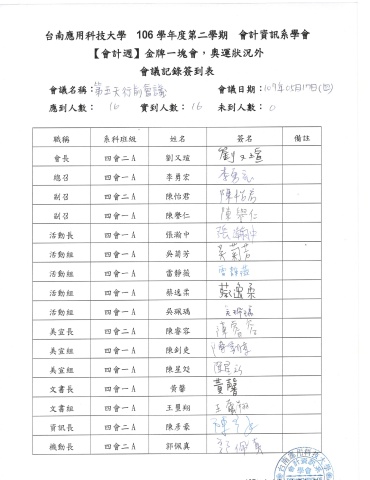 台南應用科技大學 106 學年度第二學期 會計資訊系學會
【會計週】金牌一塊會，奧運狀況外
會議記錄簽到表
會議名稱：第五次行前會議 會議日期：107年05月17日(四)
應到人數：16 實到人數：16 未到人數：0
職稱 系科班級 姓名 簽名 備註
會長 四會二A 劉又瑄 劉又瑄
總召 四會一A 李勇宏 李勇宏
副召 四會二A 陳怡君 陳怡君
副召 四會一A 陳譽仁 陳譽仁
活動長 四會一A 張瀚中 張瀚中
活動組 四會一A 吳菊芳 吳菊芳
活動組 四會一A 雷靜薇 雷靜薇
活動組 四會一A 蔡逸柔 蔡逸柔
活動組 四會一A 吳珮瑀 吳珮瑀
美宣長 四會一A 陳睿容 陳睿容
美宣組 四會一A 陳劍更
美宣組 四會一A 陳星彣
文書長 四會一A 黃馨 黃馨
文書組 四會二A 王翌翔 王翌翔
資訊長 四會二A 陳彥豪
機動長 四會二A 郭佩真 郭佩真